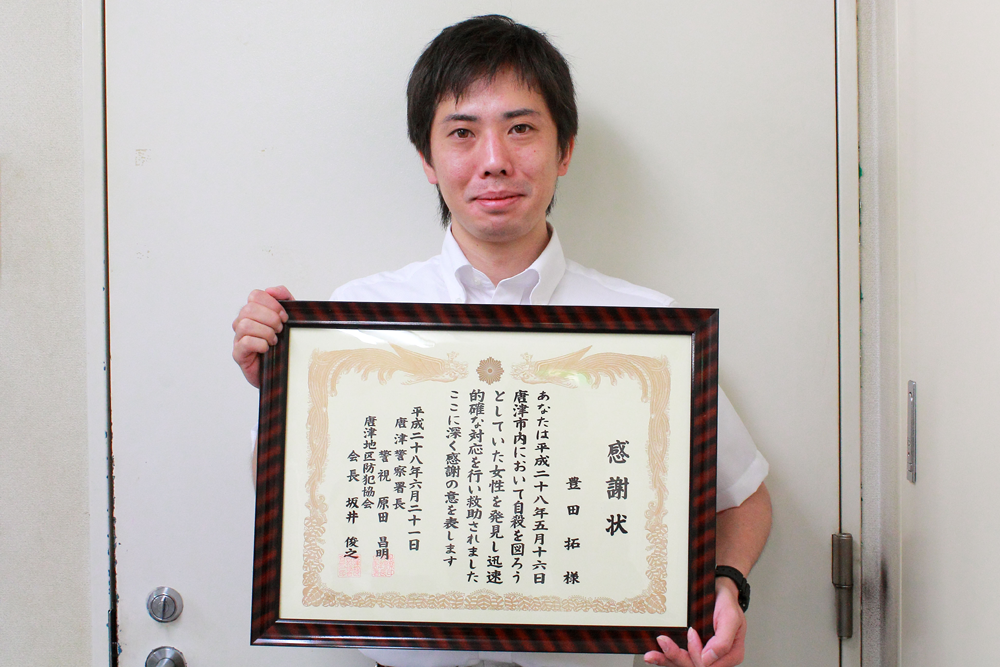 感謝状
豊田拓様
あなたは平成二十八年五月十六日
唐津市内において自殺を図ろう
としていた女性を発見し迅速
的確な対応を行い救助されました
ここに深く感謝の意を表します
平成二十八年六月二十一日
唐津警察署長
警視原田昌明
唐津地区防犯協会
会長坂井俊之